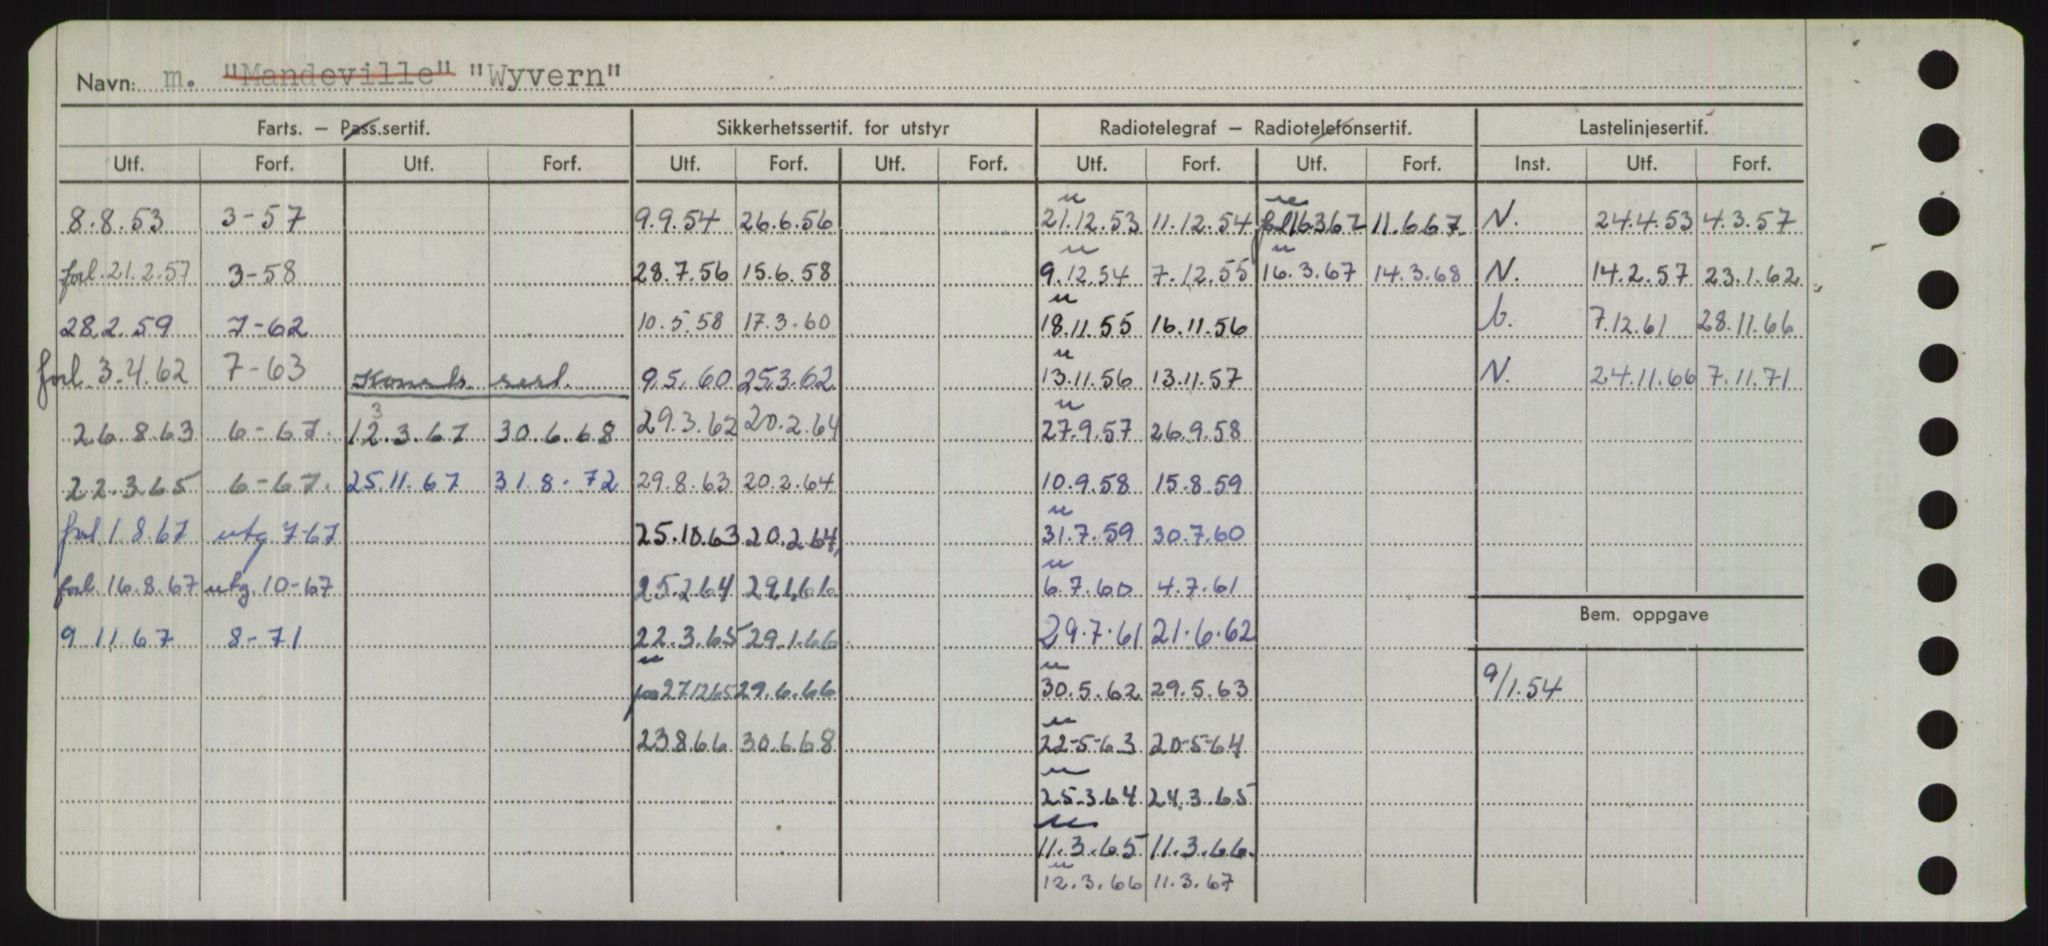 Navn: m. "Mandeville" "Wyvern"
Farts. – Pass.sertif. Sikkerhetssertif. for utstyr Radiotelegraf – Radiotelefonsertif. Lastelinjesertif.
Utf. Forf. Utf. Forf. Utf. Forf. Utf. Forf. Utf. Forf. Utf. Forf. Inst. Utf. Forf.
8.8.53 3-57 9.9.54 26.6.56 21.12.53 11.12.54 forl 16367 11.6.67. N. 24.4.53 4.3.57
forl. 21.2.57 3-58 28.7.56 15.6.58 9.12.54 7.12.55 16.3.67 14.3.68 N. 14.2.57 23.1.62
28.2.59 7-62 10.5.58 17.3.60 18.11.55 16.11.56 b. 7.12.61 28.11.66
forl 3.4.62 7-63 Konstr. sert. 9.5.60 25.3.62 13.11.56 13.11.57 N. 24.11.66 7.11.71
26.8.63 6-67. 12.3.67 30.6.68 29.3.62 20.2.64 27.9.57 26.9.58
22.3.65 6-67. 25.11.67 31.8.72 29.8.63 20.2.64 10.9.58 15.8.59
forl 1.8.67 utg 7-67 25.10.63 20.2.64 31.7.59 30.7.60
forl. 16.8.67 utg. 10-67 25.2.64 29.1.66 6.7.60 4.7.61
9.11.67 8-71 22.3.65 29.1.66 29.7.61 21.6.62
Bem. oppgave
271265 29.6.66 30.5.62 29.5.63 9/1.54
23.8.66 30.6.68 22-5-63 20-5-64
25.3.64 24.3.65
11.3.65 11.3.66.
12.3.66 11.3.67